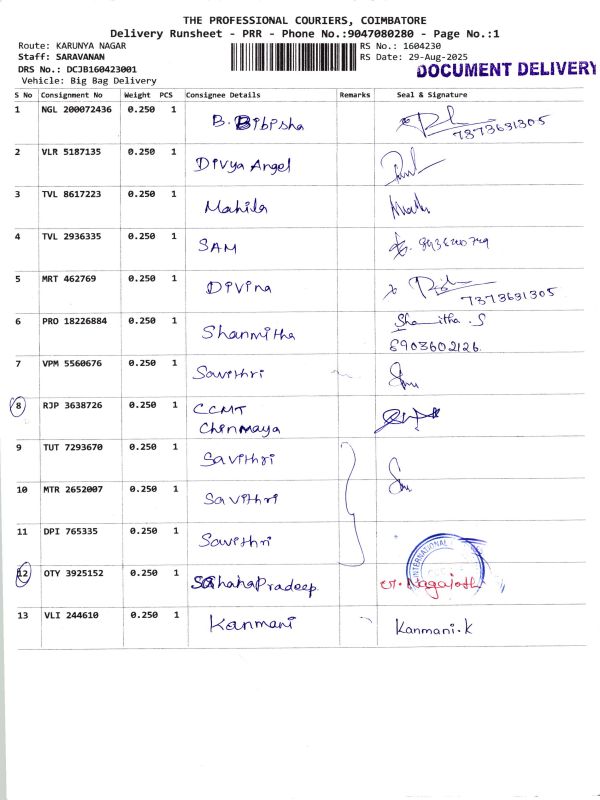 THE PROFESSIONAL COURIERS, COIMBATORE
Delivery Runsheet - PRR - Phone No.:9047080280 - Page No.:1
Route: KARUNYA NAGAR RS No.: 1604230
Staff: SARAVANAN RS Date: 29-Aug-2025
DRS No.: DCJB160423001 DOCUMENT DELIVERY
Vehicle: Big Bag Delivery
S No Consignment No Weight PCS Consignee Details Remarks Seal & Signature
1 NGL 200072436 0.250 1 B. Bibisha
7373631305
2 VLR 5187135 0.250 1 Divya Angel
3 TVL 8617223 0.250 1 Mahila
4 TVL 2936335 0.250 1 SAM
5 MRT 462769 0.250 1 Divina
7373631305
6 PRO 18226884 0.250 1 Shanmitha
8903602126
7 VPM 5560676 0.250 1 Savithri
8 RJP 3638726 0.250 1 CCMT
Chinmaya
9 TUT 7293670 0.250 1 Savithri
10 MTR 2652007 0.250 1 Savithri
11 DPI 765335 0.250 1 Savithri
INTERNATIONAL
12 OTY 3925152 0.250 1
13 VLI 244610 0.250 1 Kanmani Kanmani.K